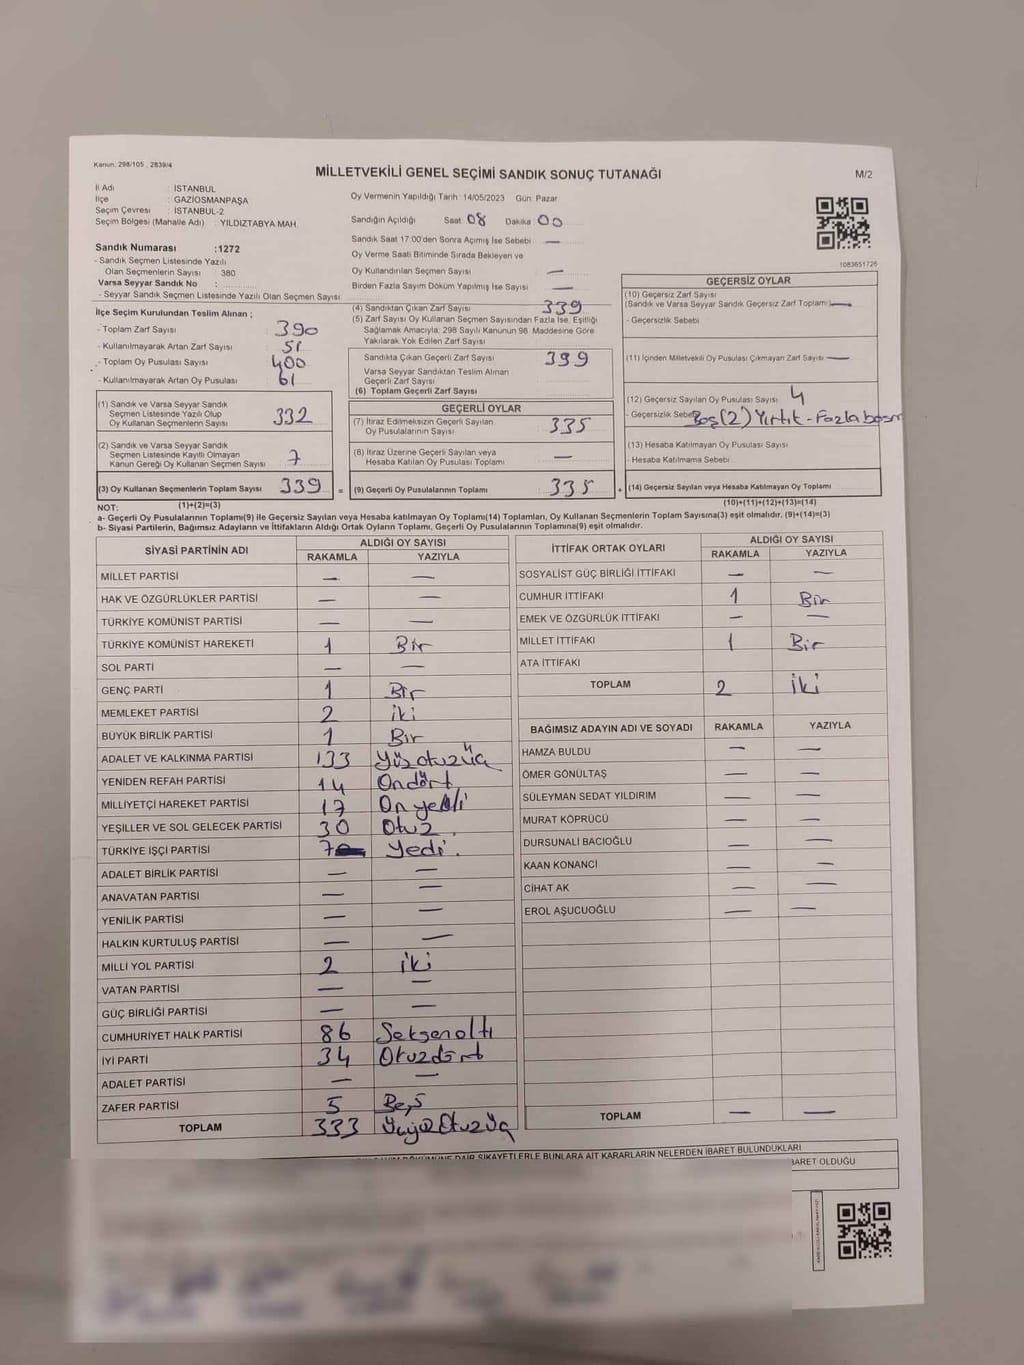 Kanun: 298/105 , 2839/4
MİLLETVEKİLİ GENEL SEÇİMİ SANDIK SONUÇ TUTANAĞI
M/2
İl Adı : İSTANBUL
İlçe : GAZİOSMANPAŞA
Seçim Çevresi : İSTANBUL-2
Seçim Bölgesi (Mahalle Adı) : YILDIZTABYA MAH.
Sandık Numarası :1272
- Sandık Seçmen Listesinde Yazılı
Olan Seçmenlerin Sayısı : 380
Varsa Seyyar Sandık No :
- Seyyar Sandık Seçmen Listesinde Yazılı Olan Seçmen Sayısı:
Oy Vermenin Yapıldığı Tarih :14/05/2023 Gün: Pazar
Sandığın Açıldığı Saat 08 Dakika 00
Sandık Saat 17:00'den Sonra Açımış İse Sebebi —
Oy Verme Saati Bitiminde Sırada Bekleyen ve
Oy Kullandırılan Seçmen Sayısı —
Birden Fazla Sayım Döküm Yapılmış İse Sayısı —
1083651726
İlçe Seçim Kurulundan Teslim Alınan ;
- Toplam Zarf Sayısı 390
- Kullanılmayarak Artan Zarf Sayısı 51
- Toplam Oy Pusulası Sayısı 400
- Kullanılmayarak Artan Oy Pusulası 61
(1) Sandık ve Varsa Seyyar Sandık
Seçmen Listesinde Yazılı Olup
Oy Kullanan Seçmenlerin Sayısı 332
(2) Sandık ve Varsa Seyyar Sandık
Seçmen Listesinde Kayıtlı Olmayan
Kanun Gereği Oy Kullanan Seçmen Sayısı 7
(3) Oy Kullanan Seçmenlerin Toplam Sayısı 339 =
(1)+(2)=(3)
(4) Sandıktan Çıkan Zarf Sayısı 339
(5) Zarf Sayısı Oy Kullanan Seçmen Sayısından Fazla İse, Eşitliği
Sağlamak Amacıyla; 298 Sayılı Kanunun 98. Maddesine Göre
Yakılarak Yok Edilen Zarf Sayısı
Sandıkta Çıkan Geçerli Zarf Sayısı 339
Varsa Seyyar Sandıktan Teslim Alınan
Geçerli Zarf Sayısı
(6) Toplam Geçerli Zarf Sayısı
GEÇERLİ OYLAR
(7) İtiraz Edilmeksizin Geçerli Sayılan
Oy Pusulalarının Sayısı 335
(8) İtiraz Üzerine Geçerli Sayılan veya
Hesaba Katılan Oy Pusulası Toplamı —
(9) Geçerli Oy Pusulalarının Toplamı 335 +
GEÇERSİZ OYLAR
(10) Geçersiz Zarf Sayısı
(Sandık ve Varsa Seyyar Sandık Geçersiz Zarf Toplamı) —
- Geçersizlik Sebebi
(11) İçinden Milletvekili Oy Pusulası Çıkmayan Zarf Sayısı —
(12) Geçersiz Sayılan Oy Pusulası Sayısı 4
- Geçersizlik Sebebi Boş(2) Yırtık-Fazla basım
(13) Hesaba Katılmayan Oy Pusulası Sayısı
- Hesaba Katılmama Sebebi
(14) Geçersiz Sayılan veya Hesaba Katılmayan Oy Toplamı
(10)+(11)+(12)+(13)=(14)
NOT:
a- Geçerli Oy Pusulalarının Toplamı(9) ile Geçersiz Sayılan veya Hesaba katılmayan Oy Toplamı(14) Toplamları, Oy Kullanan Seçmenlerin Toplam Sayısına(3) eşit olmalıdır. (9)+(14)=(3)
b- Siyasi Partilerin, Bağımsız Adayların ve İttifakların Aldığı Ortak Oyların Toplamı, Geçerli Oy Pusulalarının Toplamına(9) eşit olmalıdır.
SİYASİ PARTİNİN ADI ALDIĞI OY SAYISI
RAKAMLA YAZIYLA
MİLLET PARTİSİ — —
HAK VE ÖZGÜRLÜKLER PARTİSİ — —
TÜRKİYE KOMÜNİST PARTİSİ — —
TÜRKİYE KOMÜNİST HAREKETİ 1 Bir
SOL PARTİ — —
GENÇ PARTİ 1 Bir
MEMLEKET PARTİSİ 2 iki
BÜYÜK BİRLİK PARTİSİ 1 Bir
ADALET VE KALKINMA PARTİSİ 133 Yüzotuzüç
YENİDEN REFAH PARTİSİ 14 Ondört
MİLLİYETÇİ HAREKET PARTİSİ 17 On yedi
YEŞİLLER VE SOL GELECEK PARTİSİ 30 Otuz.
TÜRKİYE İŞÇİ PARTİSİ 7 Yedi.
ADALET BİRLİK PARTİSİ — —
ANAVATAN PARTİSİ — —
YENİLİK PARTİSİ — —
HALKIN KURTULUŞ PARTİSİ — —
MİLLİ YOL PARTİSİ 2 iki
VATAN PARTİSİ — —
GÜÇ BİRLİĞİ PARTİSİ — —
CUMHURİYET HALK PARTİSİ 86 Seksenaltı
İYİ PARTİ 34 Otuzdört
ADALET PARTİSİ — —
ZAFER PARTİSİ 5 Beş
TOPLAM 333 ÜçyüzOtuzÜç
İTTİFAK ORTAK OYLARI ALDIĞI OY SAYISI
RAKAMLA YAZIYLA
SOSYALİST GÜÇ BİRLİĞİ İTTİFAKI — —
CUMHUR İTTİFAKI 1 Bir
EMEK VE ÖZGÜRLÜK İTTİFAKI — —
MİLLET İTTİFAKI 1 Bir
ATA İTTİFAKI
TOPLAM 2 iki
BAĞIMSIZ ADAYIN ADI VE SOYADI RAKAMLA YAZIYLA
HAMZA BULDU — —
ÖMER GÖNÜLTAŞ — —
SÜLEYMAN SEDAT YILDIRIM — —
MURAT KÖPRÜCÜ — —
DURSUNALİ BACIOĞLU — —
KAAN KONANCİ — —
CİHAT AK — —
EROL AŞUCUOĞLU — —
TOPLAM — —
DÖKÜMÜNE DAİR ŞİKAYETLERLE BUNLARA AİT KARARLARIN NELERDEN İBARET BULUNDUKLARI
BARET OLDUĞU